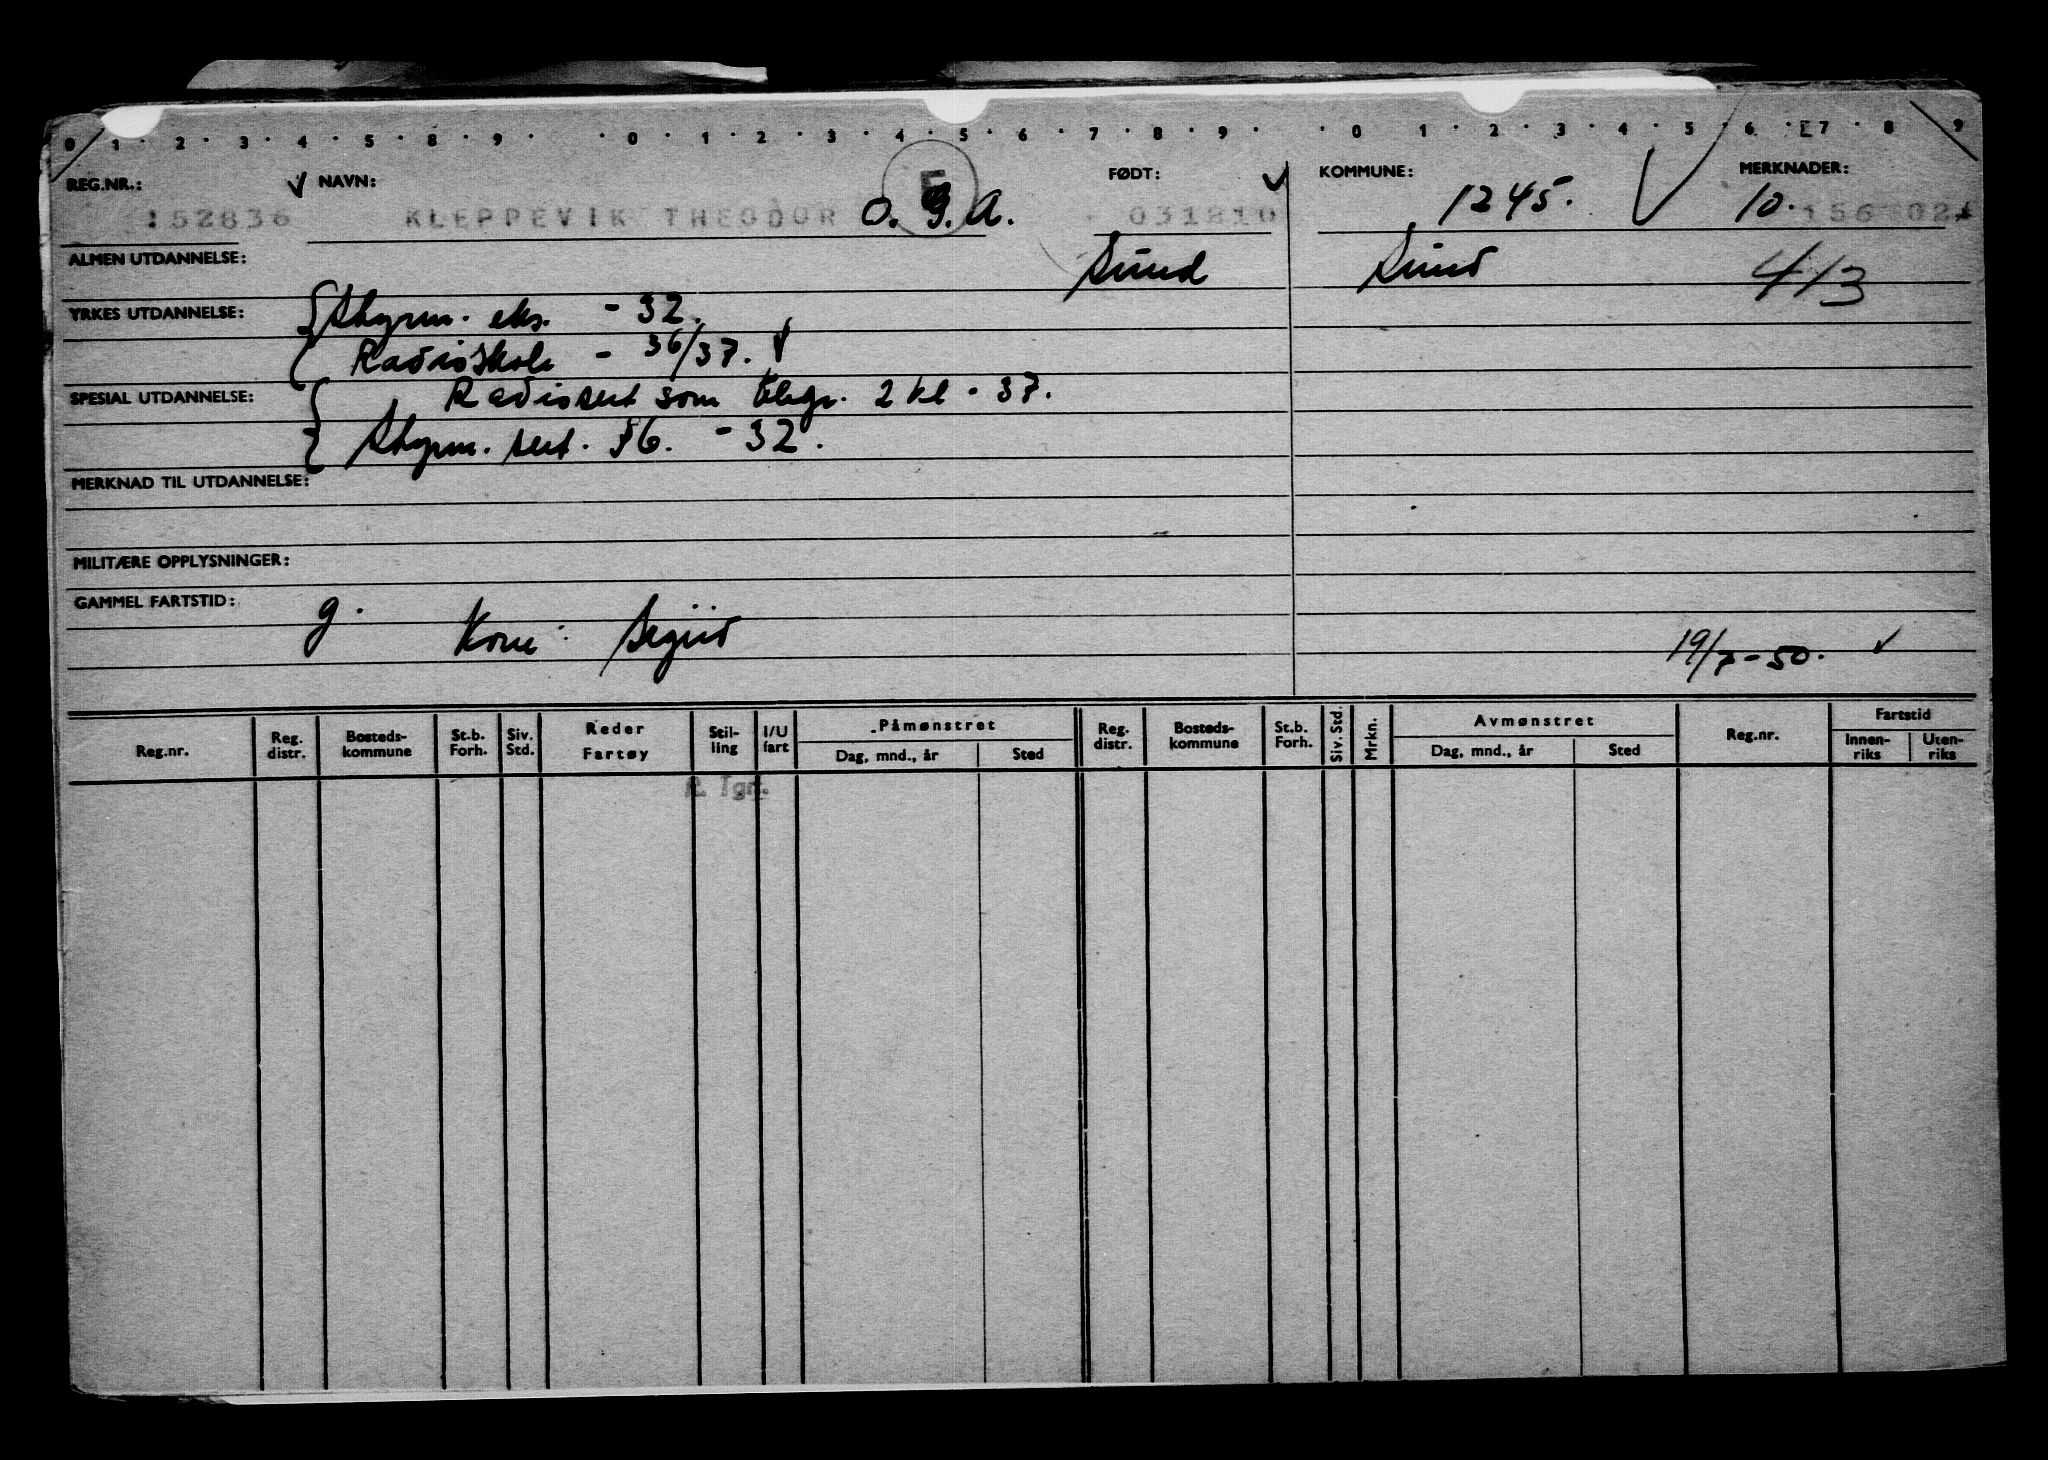 0 1 · 2 · 3 · 4 · 5 · 8 · 9 · · 0 · 1 · 2 · 3 · 4 · 5 · 6 · 7 · 8 · 9 · · 0 · 1 · 2 · 3 · 4 · 5 · 6 · 7 · 8 · 9
REG.NR.: NAVN: FØDT: KOMMUNE: MERKNADER:
152836 KLEPPEVIK THEODOR O. G. A. 031210 1245. 10. 156 02
ALMEN UTDANNELSE: Sund Sund 413
YRKES UTDANNELSE: Styrm. eks. - 32.
Radioskole - 36/37.
SPESIAL UTDANNELSE: Radiosert som telegr. 2 kl - 37.
Styrm. sert. §6. - 32.
MERKNAD TIL UTDANNELSE:
MILITÆRE OPPLYSNINGER:
GAMMEL FARTSTID: g. Kone: Sigrid
19/7-50.
Reg.nr. Reg. distr. Bosteds-kommune St.b. Forh. Siv. Std. Reder Fartøy Stil-ling I/U fart Påmønstret Dag, mnd., år Sted Reg. distr. Bosteds-kommune St.b. Forh. Siv. Std. Mrkn. Avmønstret Dag, mnd., år Sted Reg.nr. Fartstid Innen-riks Uten-riks
R. Tgr.